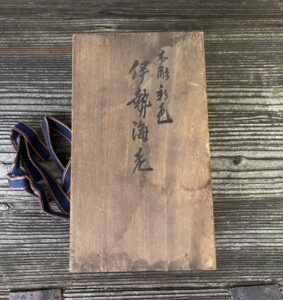 木彫彩色
伊勢海老